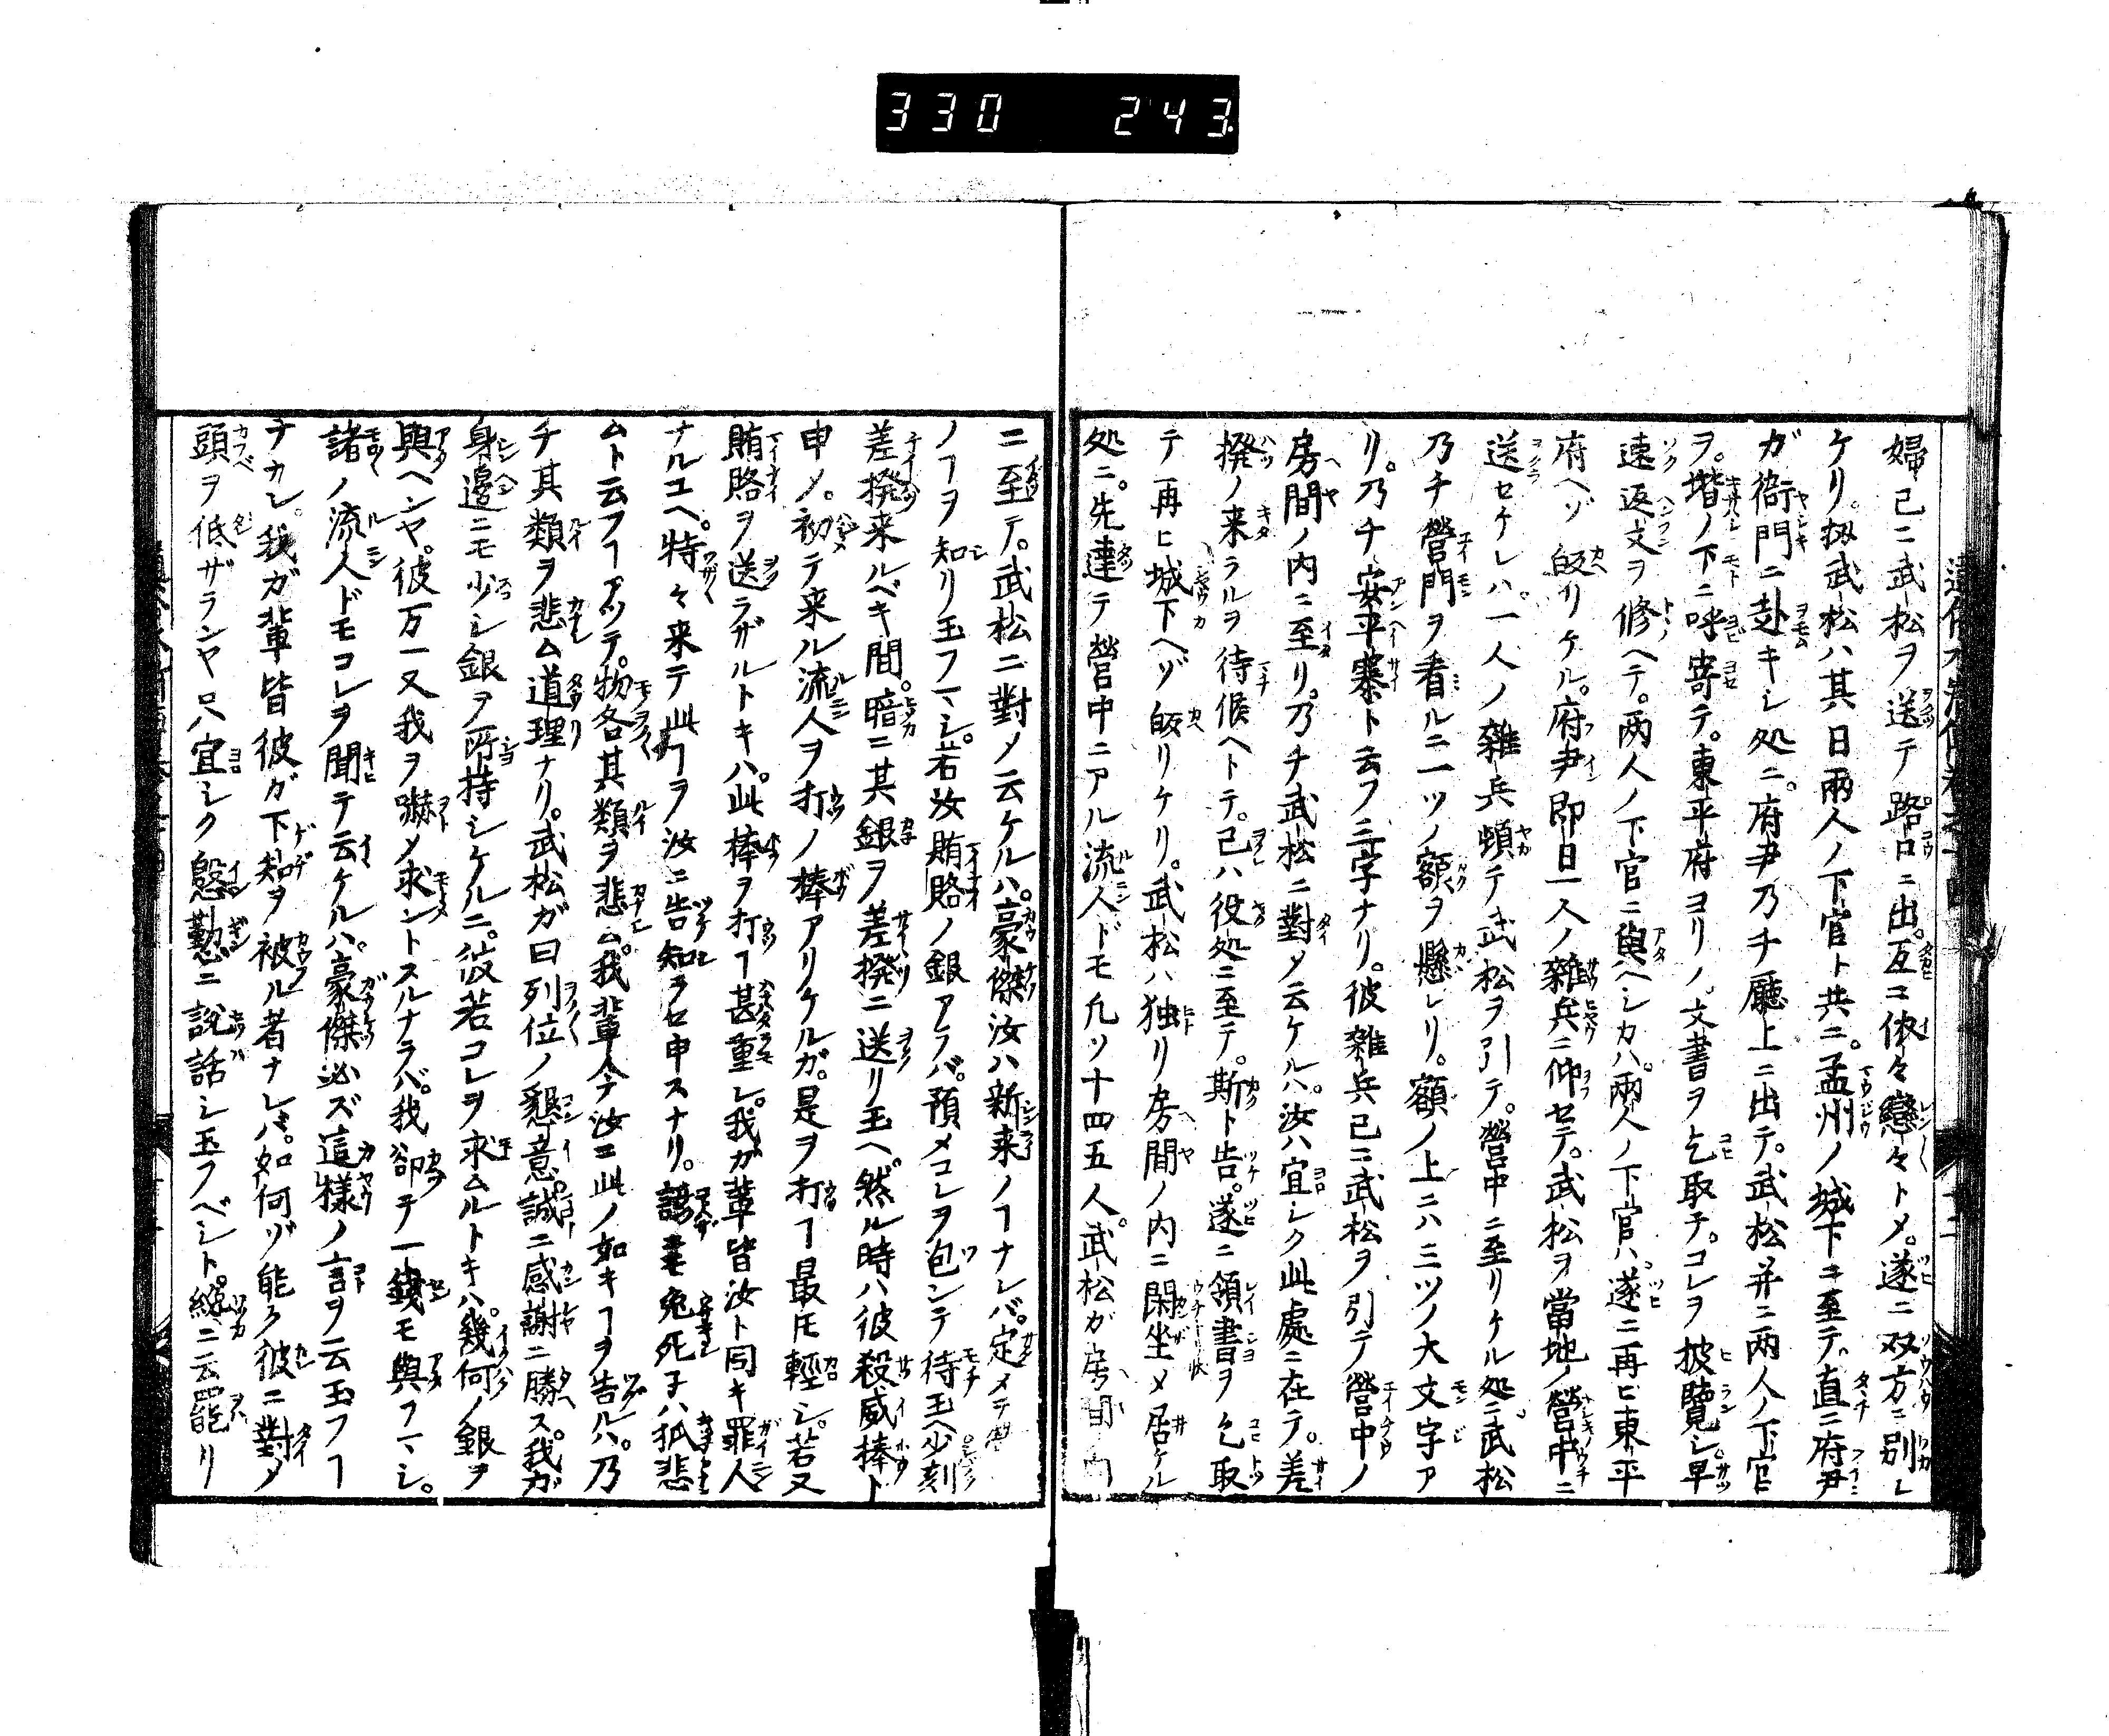 330 243
婦已ニ武松ヲ送テ路口ニ出。互ニ依々戀々トメ。遂ニ双方ニ別レ
ケリ。扨武松ハ其日兩人ノ下官ト共ニ。孟州ノ城下ニ至テ。直ニ府尹
ガ衙門ニ赴キシ処ニ。府尹乃チ廳上ニ出テ。武松并ニ兩人ノ下官
ヲ。堦ノ下ニ呼寄テ。東平府ヨリノ文書ヲ乞取テ。コレヲ披覽シ。早
速返文ヲ修ヘテ。兩人ノ下官ニ與ヘシカハ。兩人ノ下官ハ遂ニ再ヒ東平
府ヘゾ皈リケル。府尹即日一人ノ雜兵ニ仰セテ。武松ヲ當地ノ營中ニ
送セケレハ。一人ノ雜兵頓テ武松ヲ引テ。營中ニ至リケル処ニ。武松
乃チ營門ヲ看ルニ一ツノ額ヲ懸レリ。額ノ上ニハ三ツノ大文字ア
リ。乃チ安平寨ト云フ三字ナリ。彼雜兵已ニ武松ヲ引テ營中ノ
房間ノ内ニ至リ。乃チ武松ニ對メ云ケルハ。汝ハ宜シク此處ニ在テ。差
撥ノ来ラルヲ待候ヘトテ。己ハ役処ニ至テ。斯ト告。遂ニ領書ヲ乞取
テ再ヒ城下ヘゾ皈リケリ。武松ハ独リ房間ノ内ニ閑坐メ居ケル
処ニ。先達テ營中ニアル流人ドモ凡ソ十四五人。武松ガ房間
ニ至テ。武松ニ對メ云ケルハ。豪傑汝ハ新来ノヿナレバ。定メテ
ノヿヲ知リ玉フマシ。若汝賄賂ノ銀アラバ。預メコレヲ包ンテ待玉ヘ少刻
差撥来ルベキ間。暗ニ其銀ヲ差撥ニ送リ玉ヘ。然ル時ハ彼殺威捧ト
申ノ。初テ来ル流人ヲ打ノ棒アリケルガ。是ヲ打ヿ最モ輕シ。若又
賄賂ヲ送ラザルトキハ。此棒ヲ打ヿ甚重シ。我ガ輩皆汝ト同キ罪人
ナルユヘ。特々来テ此ヿヲ汝ニ告知ラセ申スナリ。諺ニモ兔死スレハ狐悲
ムト云フヿアツテ。物各其類ヲ悲ム。我輩今汝ニ此ノ如キヿヲ告ルハ。乃
チ其類ヲ悲ム道理ナリ。武松ガ曰列位ノ懇意。誠ニ感謝ニ勝ス。我ガ
身邊ニモ少シ銀ヲ所持シケルニ。彼若コレヲ求ムルトキハ。幾何ノ銀ヲ
與ヘンヤ。彼万一又我ヲ嚇メ求ントスルナラバ。我卻テ一錢モ與フマシ。
諸ノ流人ドモコレヲ聞テ云ケルハ。豪傑必ズ這樣ノ言ヲ云玉フヿ
ナカレ。我ガ輩皆彼ガ下知ヲ被ル者ナレバ。如何ゾ能ク彼ニ對メ
頭ヲ低ザランヤ只宜シク慇懃ニ説話シ玉フベシト。纔ニ云罷リ